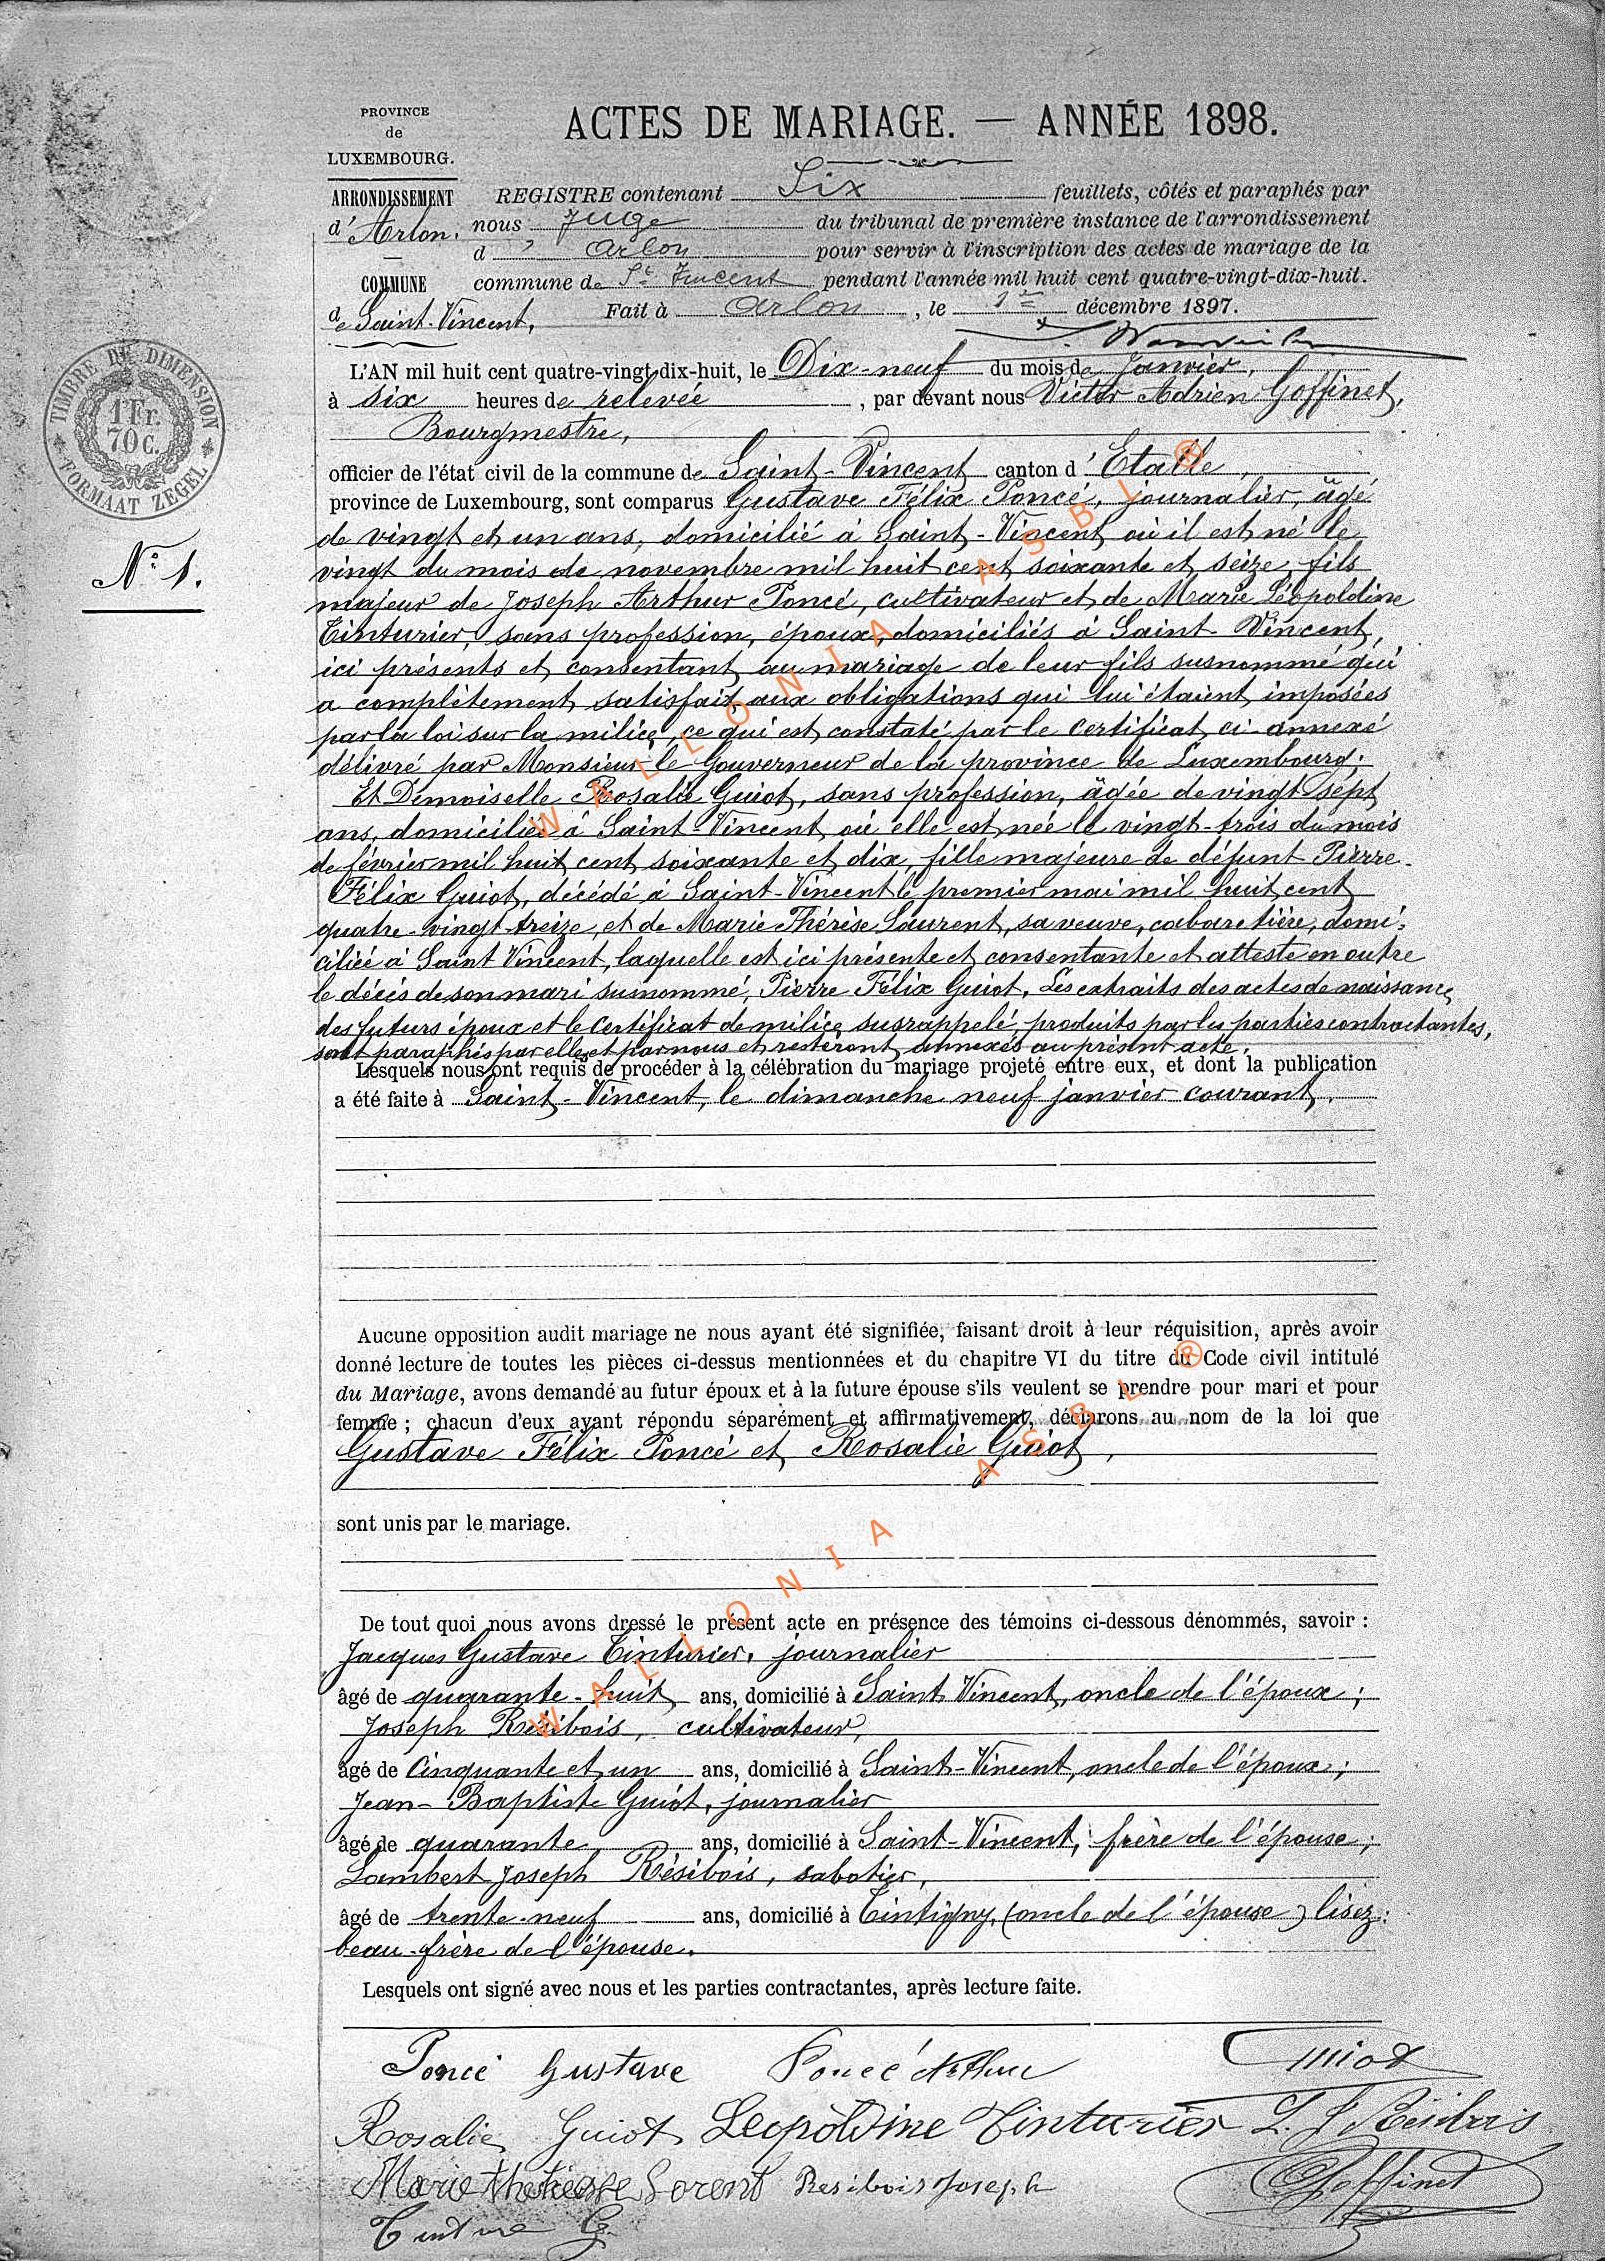 PROVINCE
de
LUXEMBOURG.
ARRONDISSEMENT
d'Arlon.
COMMUNE
de Saint-Vincent,
ACTES DE MARIAGE. — ANNÉE 1898.
REGISTRE contenant Six feuillets, côtés et paraphés par
nous Juge du tribunal de première instance de l'arrondissement
d' Arlon pour servir à l'inscription des actes de mariage de la
commune de St Vincent pendant l'année mil huit cent quatre-vingt-dix-huit.
Fait à Arlon, le 1er décembre 1897.
TIMBRE DE DIMENSION
1 Fr.
70 C.
FORMAAT ZEGEL
N° 1.
L'AN mil huit cent quatre-vingt-dix-huit, le Dix-neuf du mois de Janvier,
à six heures de relevée, par devant nous Victor Adrien Goffinet,
Bourgmestre,
officier de l'état civil de la commune de Saint-Vincent canton d'Etalle,
province de Luxembourg, sont comparus Gustave Félix Poncé, journalier, âgé
de vingt et un ans, domicilié à Saint-Vincent où il est né le
vingt du mois de novembre mil huit cent soixante et seize, fils
majeur de Joseph Arthur Poncé, cultivateur et de Marie Léopoldine
Tinturier, sans profession, époux, domiciliés à Saint-Vincent,
ici présents et consentant au mariage de leur fils susnommé qui
a complètement satisfait aux obligations qui lui étaient imposées
par la loi sur la milice, ce qui est constaté par le certificat ci-annexé
délivré par Monsieur le Gouverneur de la province de Luxembourg.
Et Demoiselle Rosalie Guiot, sans profession, âgée de vingt sept
ans, domiciliée à Saint-Vincent où elle est née le vingt-trois du mois
de février mil huit cent soixante et dix, fille majeure de défunt Pierre
Félix Guiot, décédé à Saint-Vincent le premier mai mil huit cent
quatre-vingt-treize, et de Marie Thérèse Laurent, sa veuve, cabaretière, domi-
ciliée à Saint Vincent, laquelle est ici présente et consentante et atteste en outre
le décès de son mari susnommé, Pierre Félix Guiot. Les extraits des actes de naissance
des futurs époux et le certificat de milice susrappelé, produits par les parties contractantes,
sont paraphés par elles et par nous et resteront annexés au présent acte.
Lesquels nous ont requis de procéder à la célébration du mariage projeté entre eux, et dont la publication
a été faite à Saint-Vincent, le dimanche neuf janvier courant,
Aucune opposition audit mariage ne nous ayant été signifiée, faisant droit à leur réquisition, après avoir
donné lecture de toutes les pièces ci-dessus mentionnées et du chapitre VI du titre du Code civil intitulé
du Mariage, avons demandé au futur époux et à la future épouse s'ils veulent se prendre pour mari et pour
femme ; chacun d'eux ayant répondu séparément et affirmativement, déclarons au nom de la loi que
Gustave Félix Poncé et Rosalie Guiot,
sont unis par le mariage.
De tout quoi nous avons dressé le présent acte en présence des témoins ci-dessous dénommés, savoir :
Jacques Gustave Tinturier, journalier
âgé de quarante-huit ans, domicilié à Saint Vincent, oncle de l'époux ;
Joseph Résibois, cultivateur,
âgé de Cinquante et un ans, domicilié à Saint-Vincent, oncle de l'époux ;
Jean-Baptiste Guiot, journalier
âgé de quarante ans, domicilié à Saint-Vincent, frère de l'épouse ;
Lambert Joseph Résibois, sabotier,
âgé de trente-neuf ans, domicilié à Tintigny, (oncle de l'épouse) lisez :
beau-frère de l'épouse.
Lesquels ont signé avec nous et les parties contractantes, après lecture faite.
Poncé Gustave Poncé Arthur Guiot
Rosalie Guiot Leopoldine Tinturier L. J Résibois
Marie Lorent Resibois Joseph Goffinet
G.
WALLONIA ASBL ®
WALLONIA ASBL ®